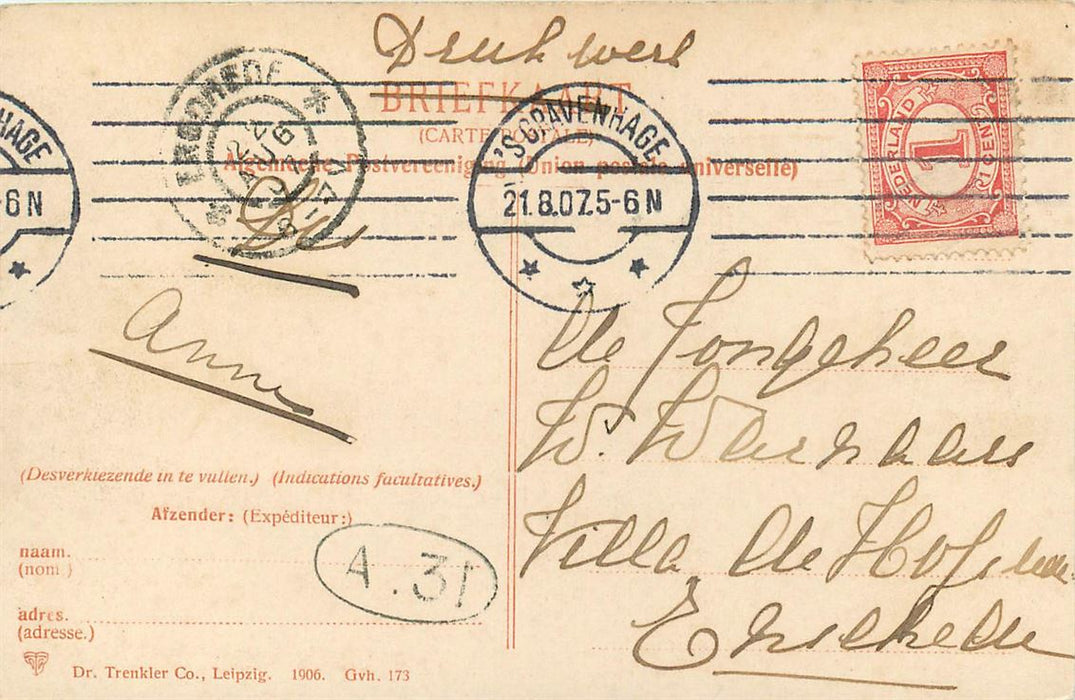 Drukwerk
BRIEFKAART
(CARTE POSTALE)
Algemeene Postvereeniging (Union postale universelle)
'S GRAVENHAGE
21.8.07.5-6 N
HAGE
6 N
22 AUG
NEDERLAND
1
1 CENT
De Jongeheer
W. Warnaars
Villa De Hof
Enschede
Anna
(Desverkiezende in te vullen.) (Indications facultatives.)
Afzender: (Expéditeur:)
naam.
(nom)
A. 31
adres.
(adresse.)
Dr. Trenkler Co., Leipzig. 1906. Gvh. 173